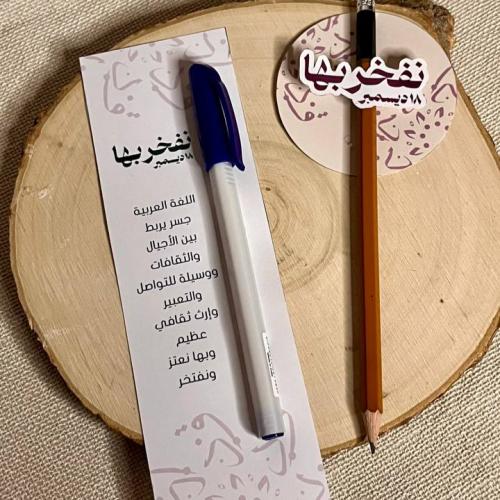 نفخر بها
١٨ ديسمبر
اللغة العربية
جسر يربط
بين الأجيال
والثقافات
ووسيلة للتواصل
والتعبير
وإرث ثقافي
عظيم
وبها نعتز
ونفتخر
نفخر بها
١٨ ديسمبر